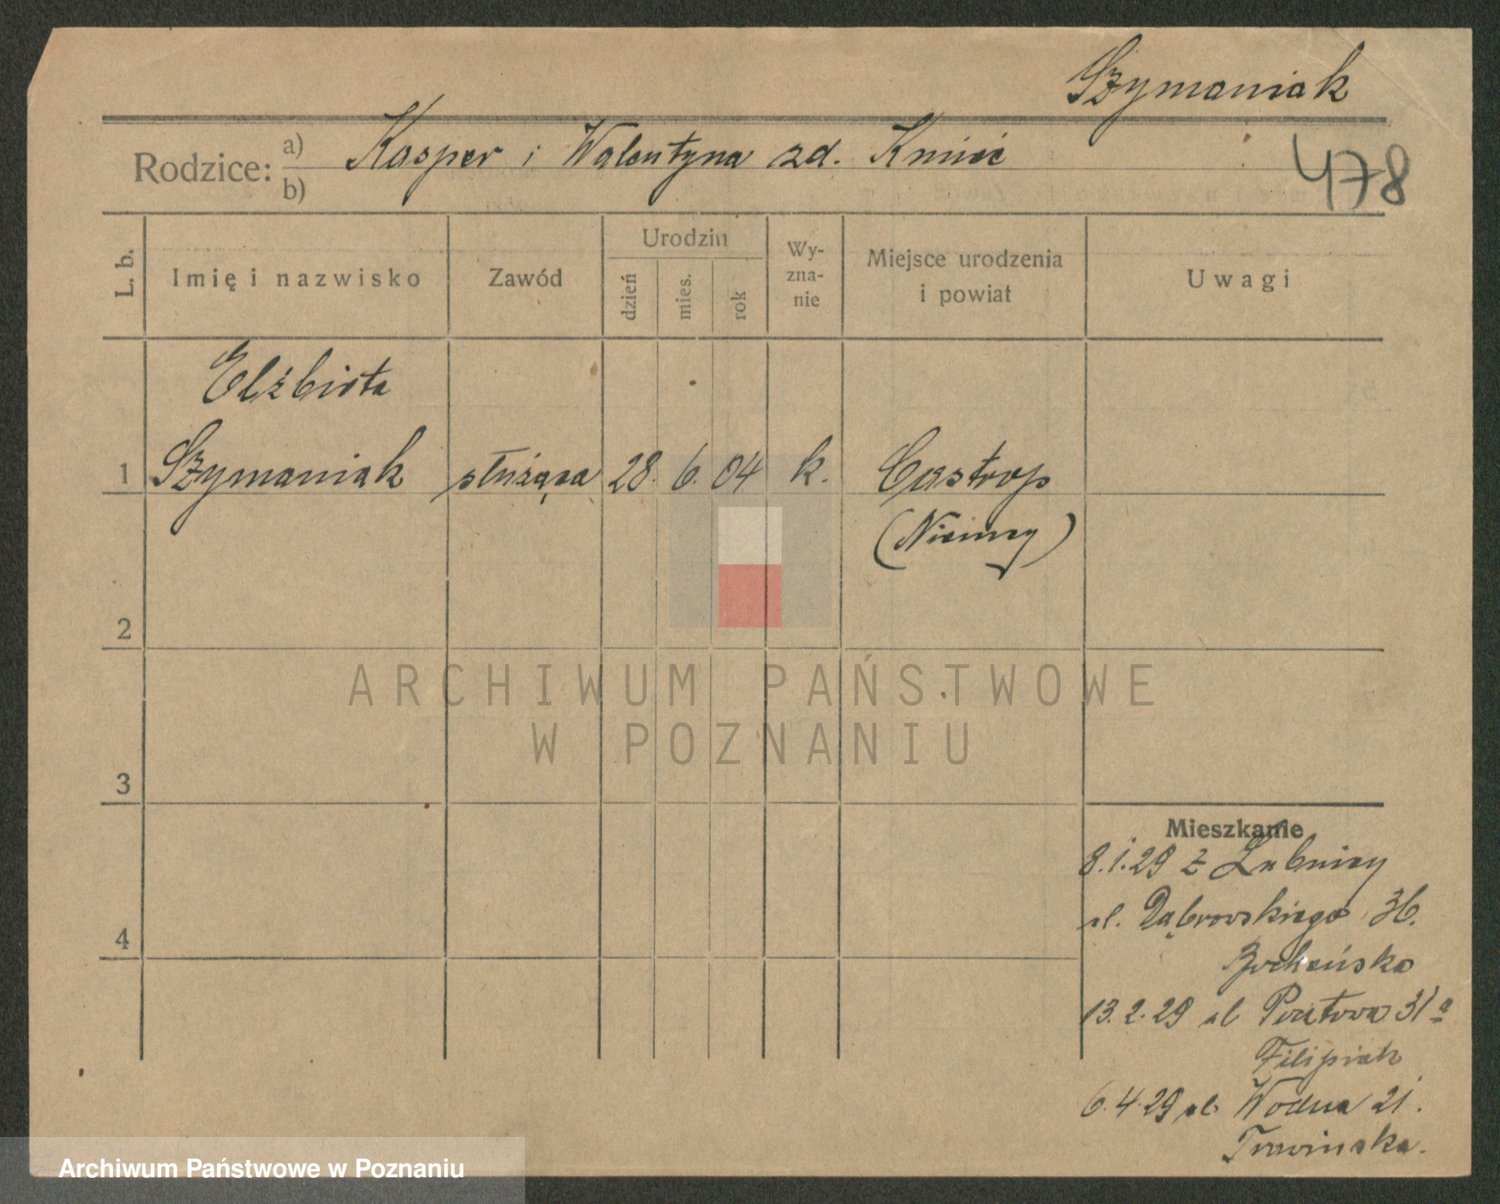 Szymaniak
Rodzice: a) Kasper i Walentyna zd. Kmieć
b)
478
L. b.
Imię i nazwisko
Zawód
Urodzin
dzień
mies.
rok
Wy-
zna-
nie
Miejsce urodzenia
i powiat
Uwagi
Elżbieta
1 Szymaniak służąca 28. 6. 04 k. Castrop
(Niemcy)
2
3
4
ARCHIWUM PAŃSTWOWE
W POZNANIU
Mieszkanie
8.1.29 z Łubnicy
ul. Dąbrowskiego 36.
13.2.29 ul Pocztowa 31a
Filipiak
6.4.29 ul. Wodna 21.
Archiwum Państwowe w Poznaniu